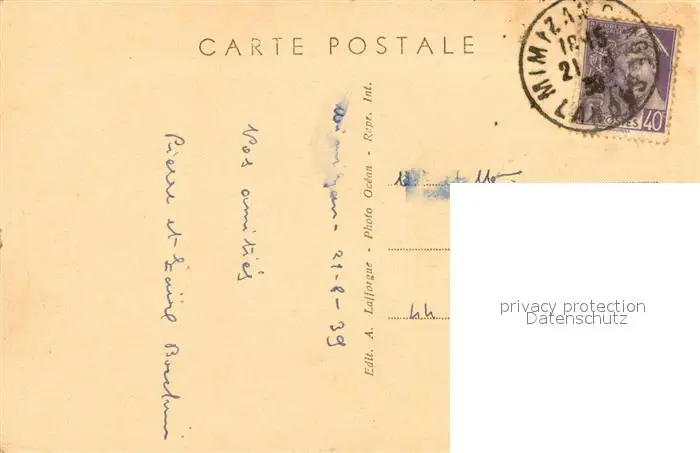 CARTE POSTALE
MIMIZAN
LANDES
RÉPUBLIQUE FRANÇAISE
40c
POSTES
Mimizan - 21-8-39
Vos amitiés
Pierre et
Edit. A. Lafforgue - Photo Océan - Repr. Int.
44
privacy protection
Datenschutz